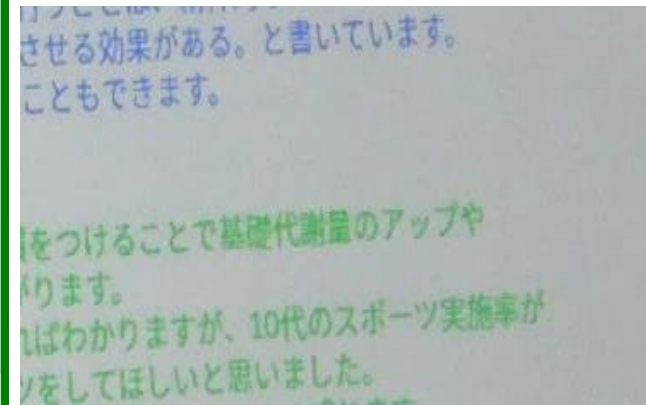 させる効果がある。と書いています。
こともできます。
をつけることで基礎代謝量のアップや
ります。
ればわかりますが、10代のスポーツ実施率が
ツをしてほしいと思いました。